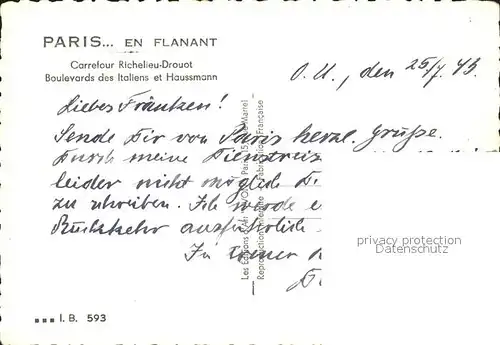 PARIS... EN FLANANT
Carrefour Richelieu-Drouot
Boulevards des Italiens et Haussmann
O. U., den 25/7. 43.
Liebes Fräntzen!
Sende Dir von Paris herzl. Grüße.
Durch meine Dienstreis
leider nicht möglich D
zu schreiben. Ich werde e
Rückkehr ausführlich
In treuer
D
Les Editions d'Art "YVON"
Reproduction interdite - Fabrication Française
privacy protection
Datenschutz
I. B. 593